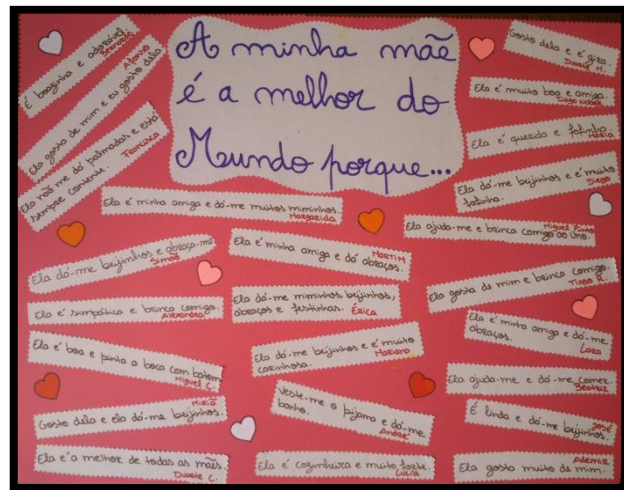 A minha mãe
é a melhor do
Mundo porque...
É boazinha e adorável.
Bernardo
Ela gosta de mim e eu gosto dela
Afonso
Ela não me dá palmadas e está
sempre contente.
Francisca
Ela é minha amiga e dá-me muitos miminhos.
Margarida
Ela dá-me beijinhos e abraça-me
Simão
Ela é simpática e brinca comigo.
Alexandra
Ela é boa e pinta a boca com batom
Miguel C.
Gosto dela e ela dá-me beijinhos.
Maria
Ela é a melhor de todas as mães.
Duarte C.
Ela é minha amiga e dá abraços.
MARTIM
Ela dá-me miminhos, beijinhos,
abraços e festinhas. Érica
Ela dá-me beijinhos e é muito
carinhosa.
Mariana
Veste-me o pijama e dá-me
banho.
André
Ela é cozinheira e muito forte.
Lúcia
Gosto dela e é gira.
Duarte M.
Ela é muito boa e amiga.
Ela é querida e fofinha.
Maria
Ela dá-me beijinhos e é muito
fofinha.
Diego
Ela ajuda-me e brinca comigo ao Uno.
Miguel Pinto
Ela gosta de mim e brinca comigo.
Tiago R.
Ela é minha amiga e dá-me
abraços.
Lara
Ela ajuda-me e dá-me comer.
Beatriz
É linda e dá-me beijinhos.
JOSÉ
Ela gosta muito de mim.
Ademir